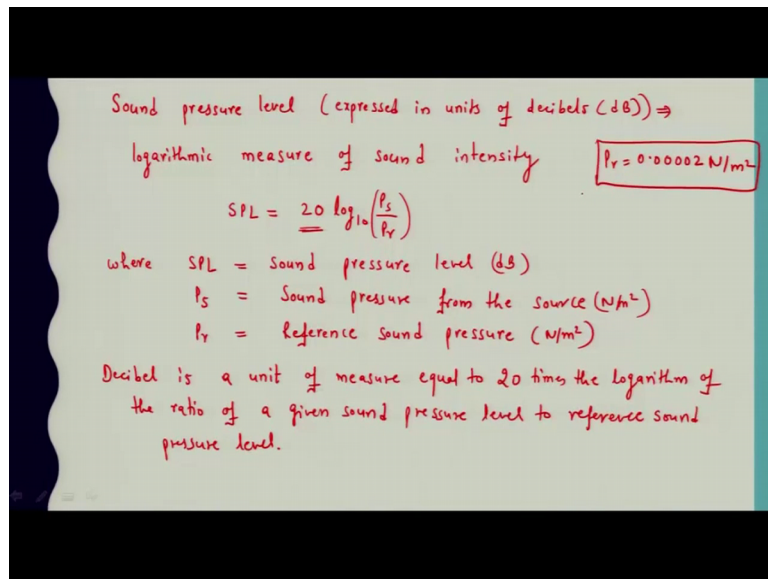 Sound pressure level (expressed in units of decibels (dB)) ⇒
logarithmic measure of sound intensity
Pr = 0.00002 N/m²
SPL = 20 log₁₀(Ps/Pr)
where SPL = Sound pressure level (dB)
Ps = Sound pressure from the source (N/m²)
Pr = Reference sound pressure (N/m²)
Decibel is a unit of measure equal to 20 times the logarithm of
the ratio of a given sound pressure level to reference sound
pressure level.